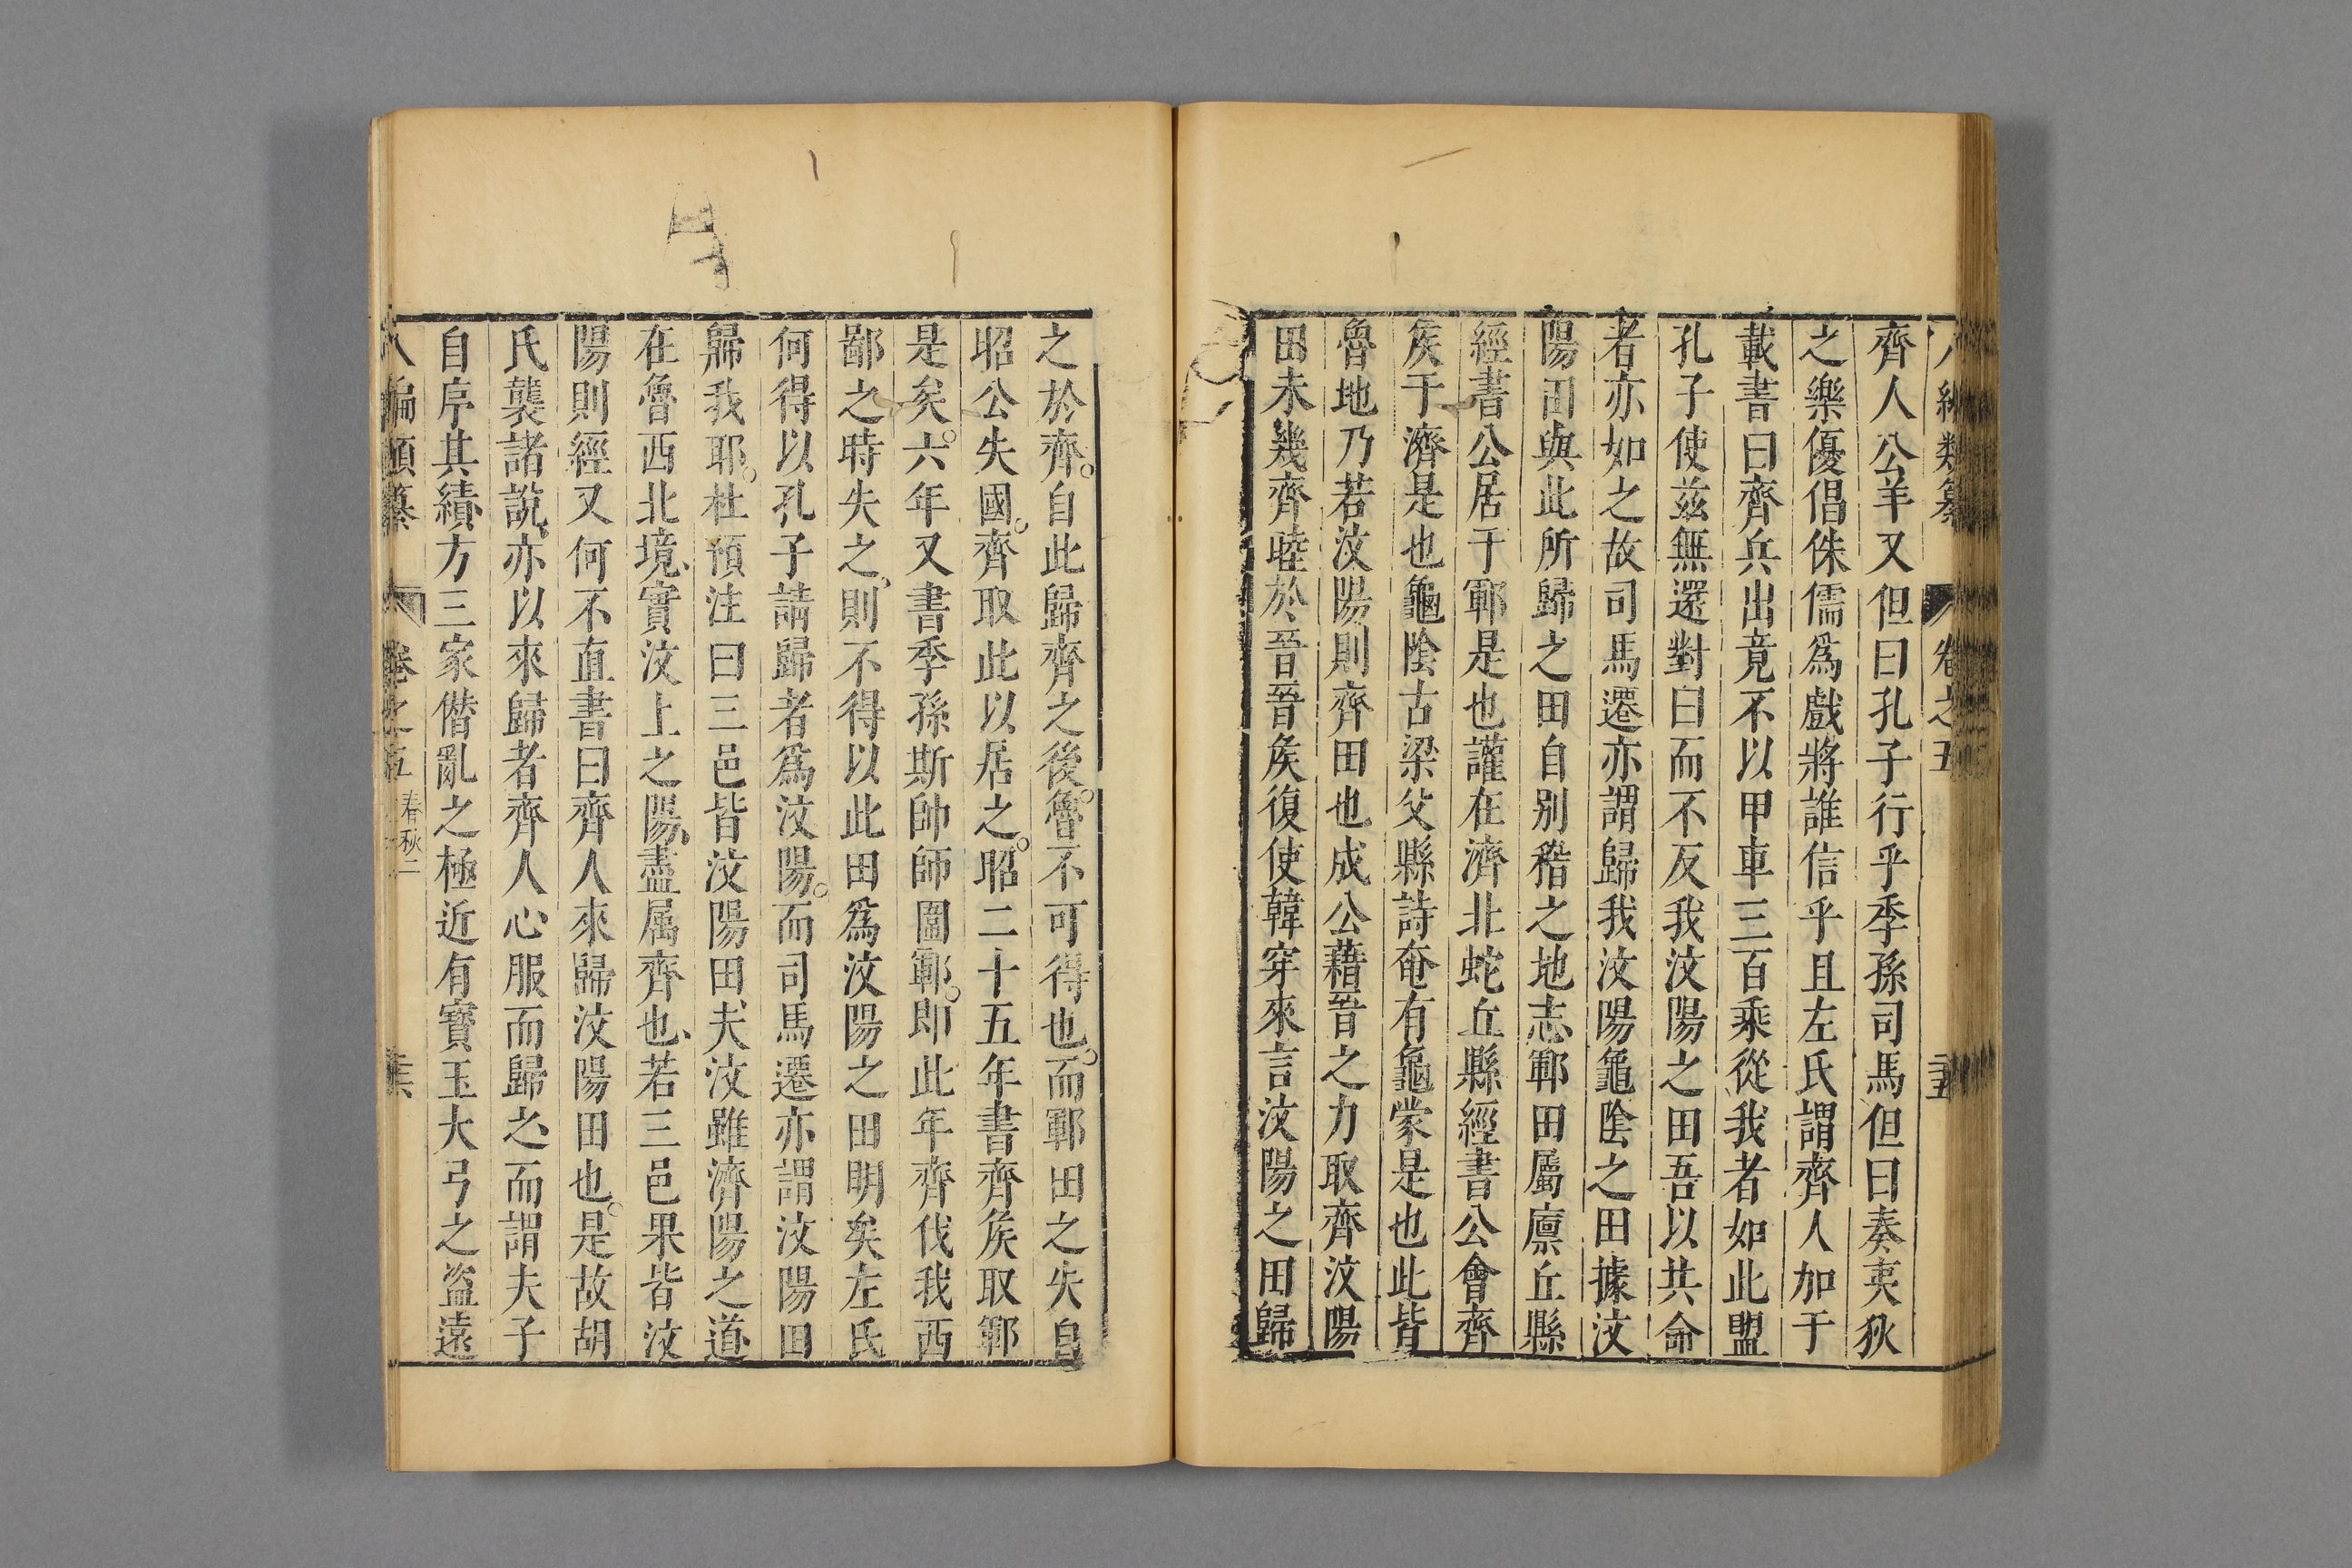 八編類纂 卷之五 三五
齊人公羊又但曰孔子行乎季孫司馬但曰奏夷狄
之樂優倡侏儒爲戲將誰信乎且左氏謂齊人加于
載書曰齊兵出竟不以甲車三百乘從我者如此盟
孔子使茲無還對曰而不反我汶陽之田吾以共命
者亦如之故司馬遷亦謂歸我汶陽龜陰之田據汶
陽田與此所歸之田自别稽之地志鄆田屬廪丘縣
經書公居于鄆是也讙在濟北蛇丘縣經書公會齊
矦于濟是也龜陰古梁父縣詩奄有龜蒙是也此皆
魯地乃若汶陽則齊田也成公藉晉之力取齊汶陽
田未幾齊睦於晉晉矦復使韓穿來言汶陽之田歸
之於齊自此歸齊之後魯不可得也而鄆田之失自
昭公失國齊取此以居之昭二十五年書齊矦取鄆
是矣六年又書季孫斯帥師圍鄆即此年齊伐我西
鄙之時失之則不得以此田爲汶陽之田明矣左氏
何得以孔子請歸者爲汶陽而司馬遷亦謂汶陽田
歸我耶杜預注曰三邑皆汶陽田夫汶雖濟陽之道
在魯西北境實汶上之陽盡属齊也若三邑果皆汶
陽則經又何不直書曰齊人來歸汶陽田也是故胡
氏襲諸說亦以來歸者齊人心服而歸之而謂夫子
自序其績方三家僭亂之極近有寳玉大弓之盗遠
八編類纂 卷之五 春秋二 三六